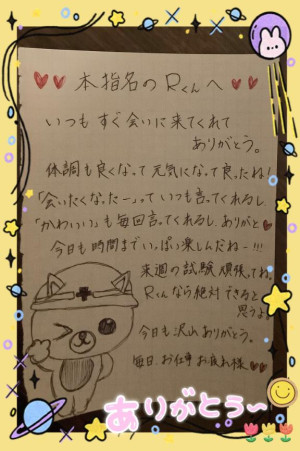 本指名のRくんへ
いつもすぐ会いに来てくれて
ありがとう。
体調も良くなって元気になって良ったね!
「会いたくなったー」っていつも言ってくれるし
「かわいい」も毎回言ってくれるし、ありがと
今日も時間までいっぱい楽しんだねー!!!
来週の試験頑張ってね。
Rくんなら絶対できると
思うよ
今日も沢山ありがとう。
毎日お仕事お疲れ様
ありがとう〜